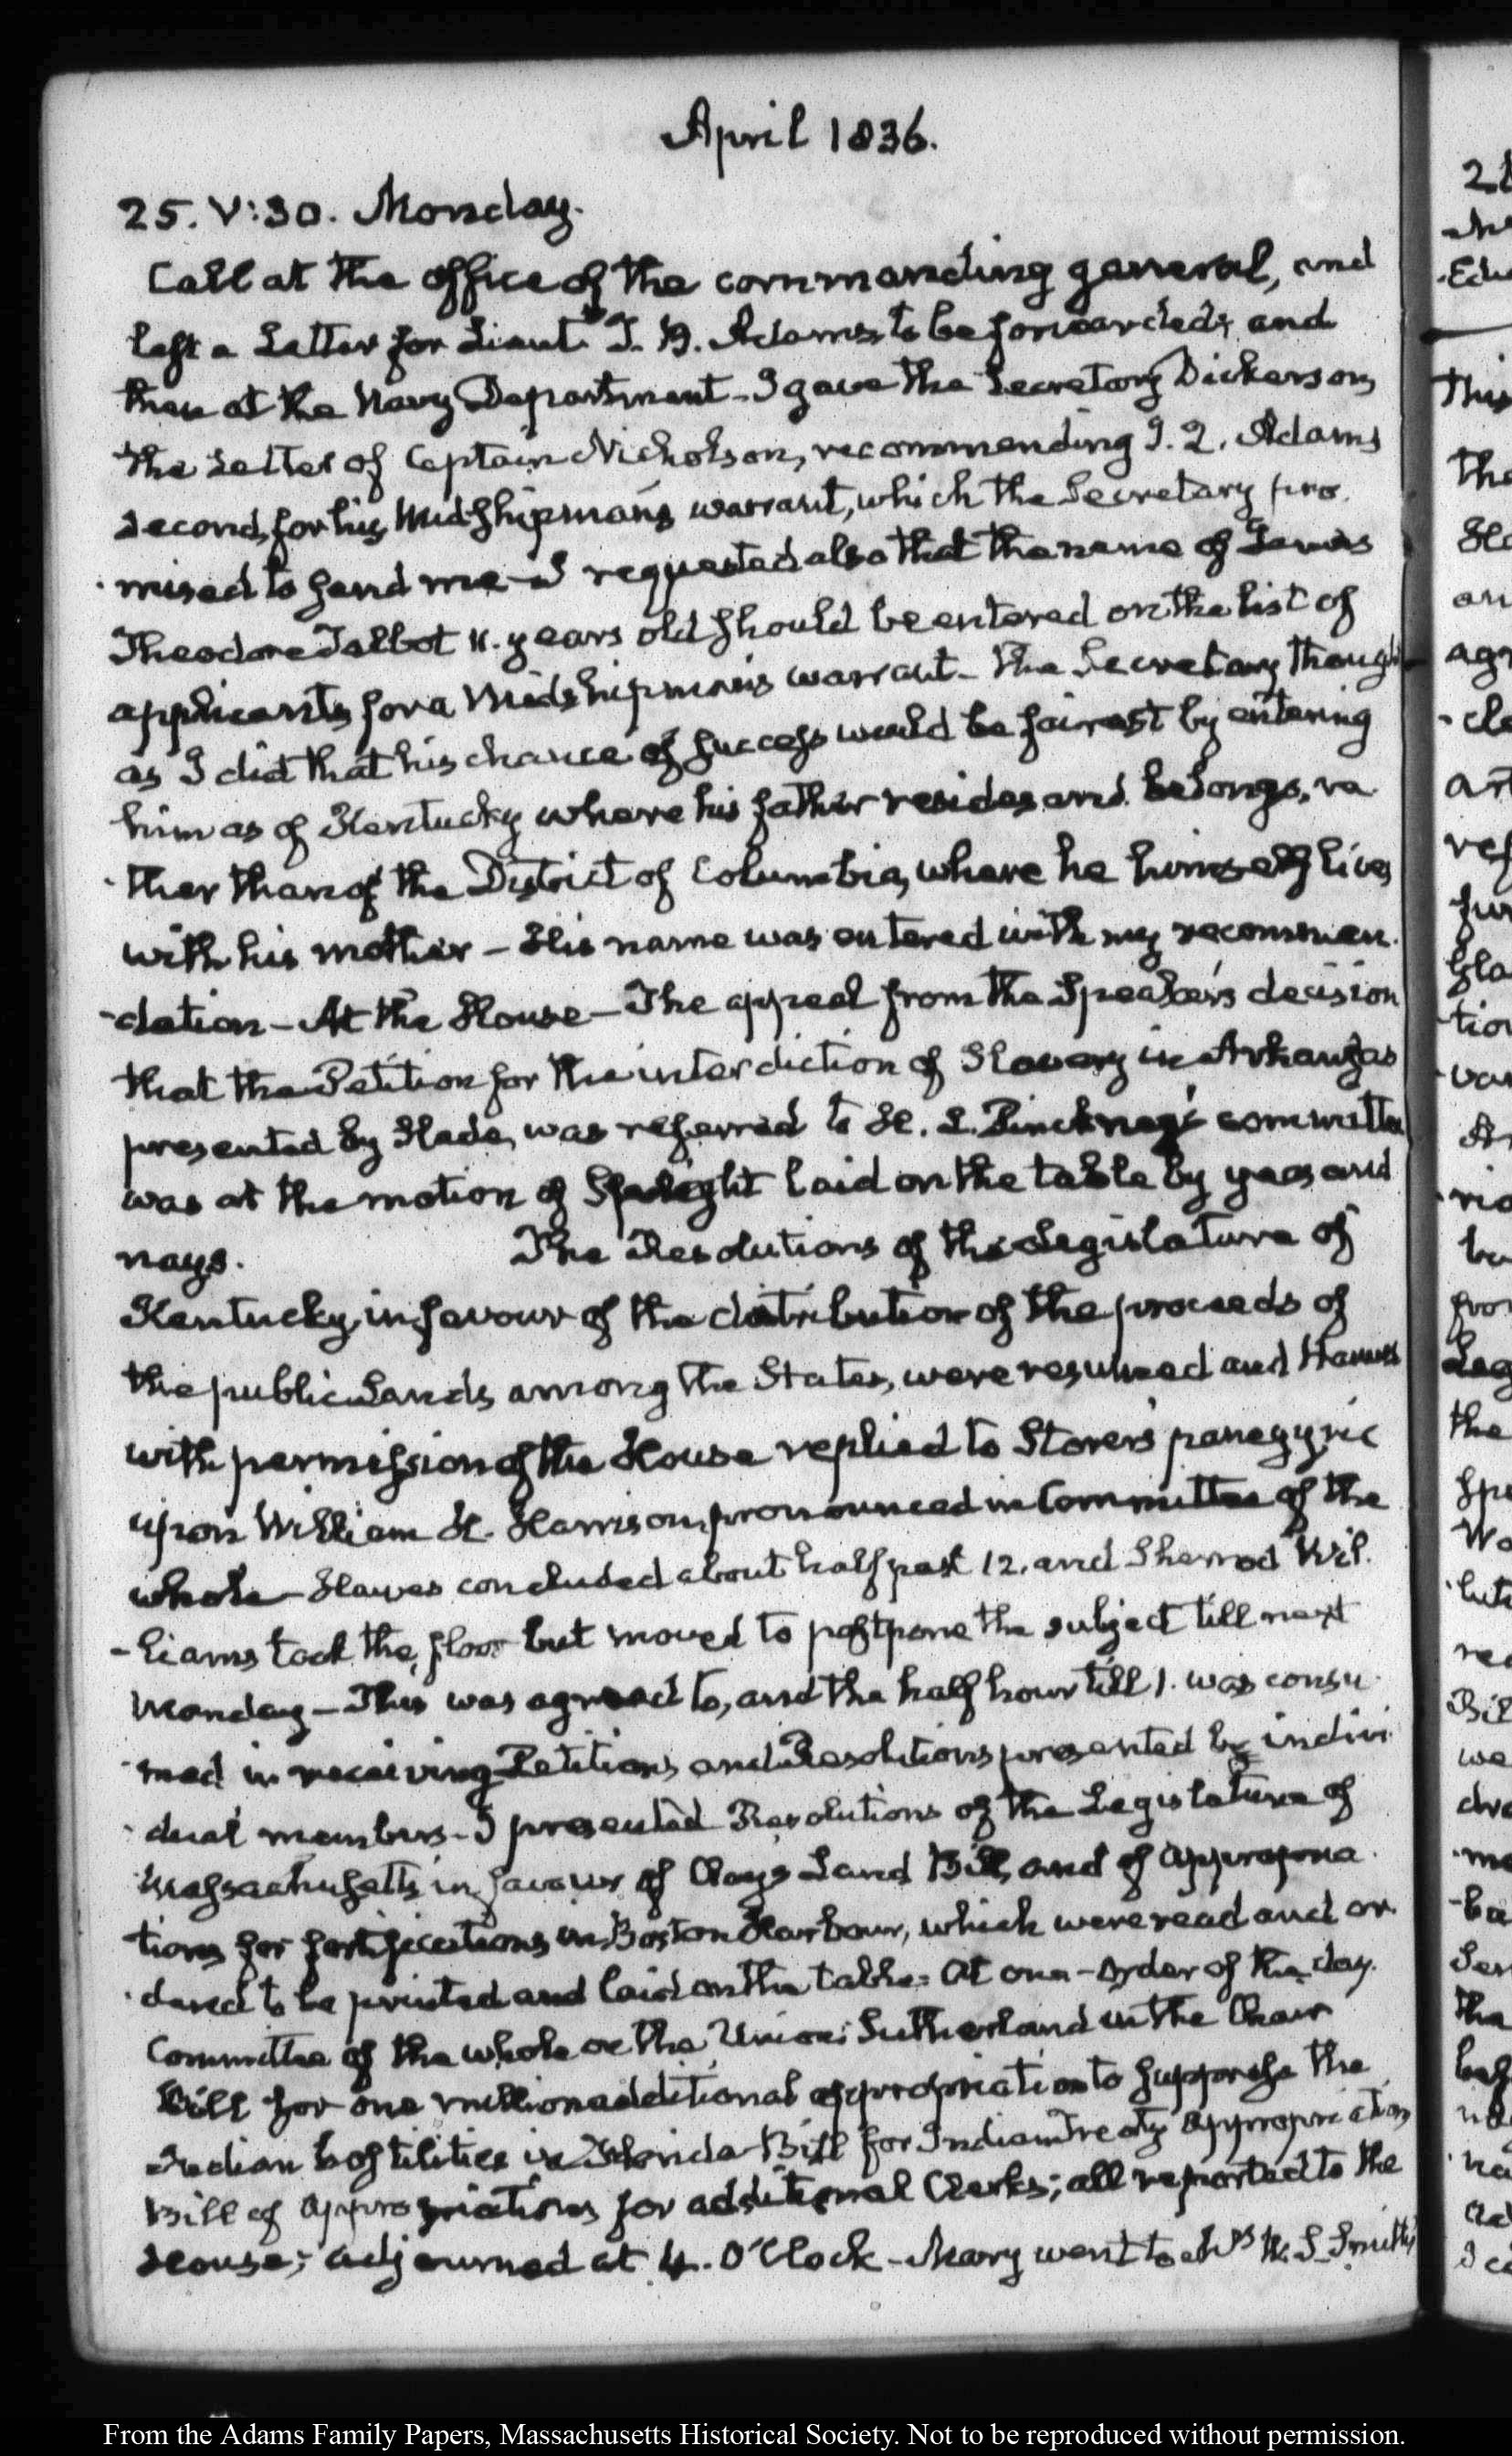 April 1836.
25. V:30. Monday.
Call at the office of the commanding general, and
left a Letter for Lieut. T. B. Adams to be forwarded; and
then at the Navy Department_ I gave the Secretary Dickerson,
the Letter of Captain Nicholson, recommending J. Q. Adams
second, for his Midshipman's warrant, which the Secretary pro
-mised to send me_ I requested also that the name of
Theodore Talbot 11. years old should be entered on the list of
applicants for a Midshipman's warrant_ The Secretary though
as I did that his chance of success would be fairest by entering
him as of Kentucky where his father resides and belongs, ra
-ther than of the District of Columbia, where he himself lives
with his mother – His name was entered with my recommen
-dation – At the House – The appeal from the Speaker's decision
that the Petition for the interdiction of Slavery in Arkansas
presented by Slade, was referred to H. L. Pinckney's committee
was at the motion of Speight laid on the table by yeas and
nays. The Resolutions of the Legislature of
Kentucky, in favour of the distribution of the proceeds of
the public Lands among the States, were resumed and Hawes
with permission of the House replied to Storer's panegyric
upon William H. Harrison, pronounced in Committee of the
whole – Hawes concluded about half past 12. and Sherrod Wil
-liams took the floor but moved to postpone the subject till next
Monday – This was agreed to, and the half hour till 1. was consu
-med in receiving Petitions and Resolutions presented by indivi
-dual members_ I presented Resolutions of the Legislature of
Massachusetts in favour of Clay's Land Bill, and of appropria
tions for fortifications in Boston Harbour, which were read and or
-dered to be printed and laid on the table: At one – Order of the day.
Committee of the whole on the Union: Sutherland in the Chair
Bill for one million additional appropriation to suppress the
Indian hostilities in Florida – Bill for Indian Treaty appropriation
Bill of appropriations for additional Clerks; all reported to the
House; adjourned at 4. O'Clock – Mary went to Mrs W. S. Smith's
From the Adams Family Papers, Massachusetts Historical Society. Not to be reproduced without permission.